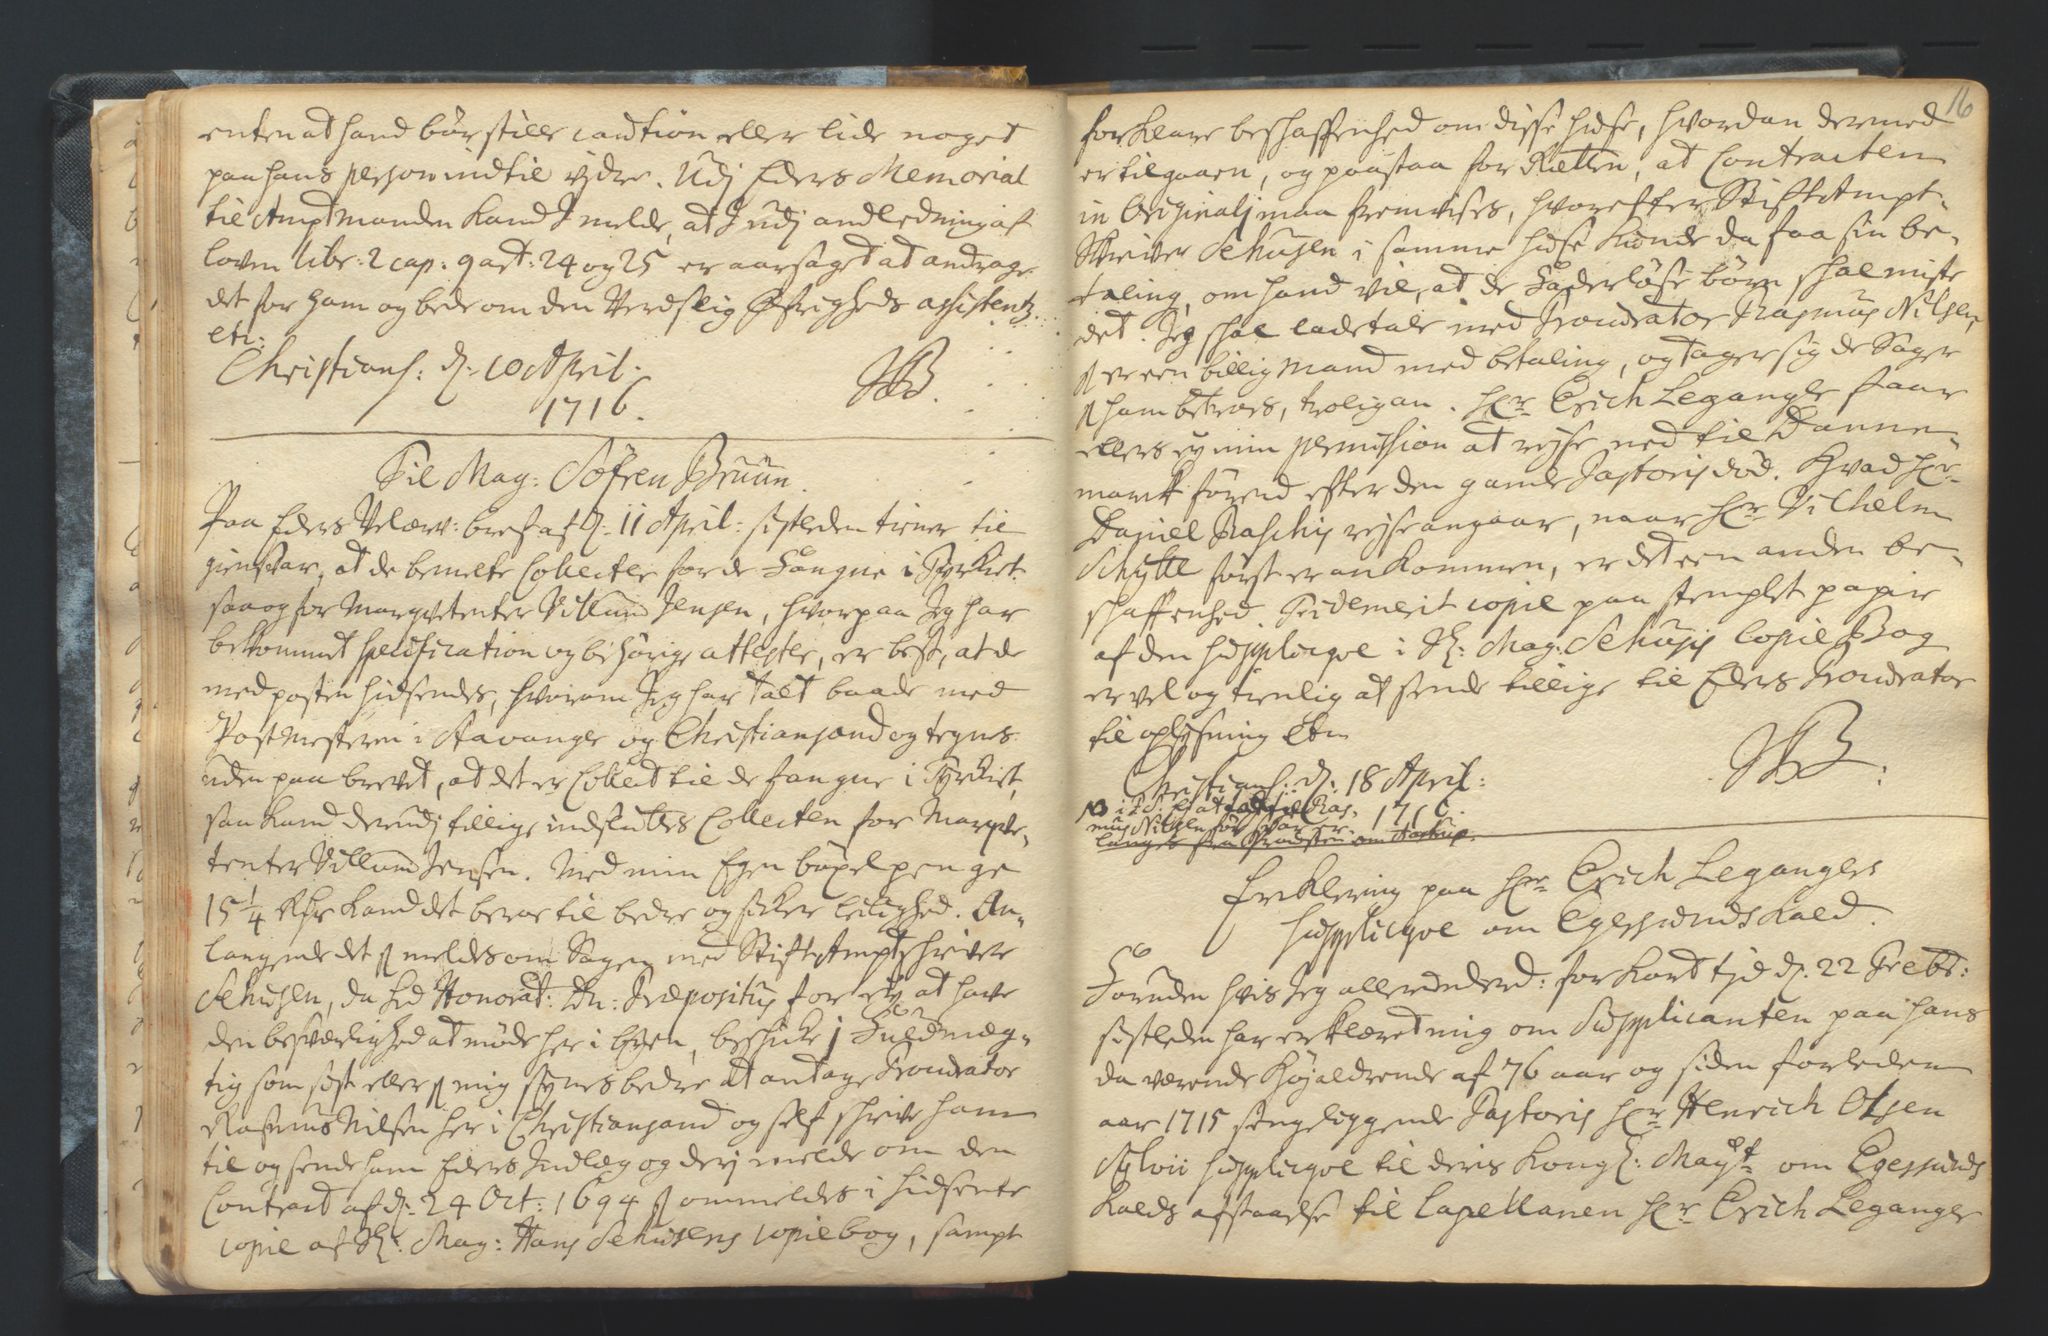 enten at hand bör stille caution eller lide noget
paa hans person indtil vjdre. Udj Eders Memorial
til Amptmanden kand I melde, at I udj andledning af
loven libr: 2 cap: 9 art: 24 og 25 er aarsaget at andrage
det for ham og bede om den Verdslig Øfrigheds assistentz
etc:
Christians: d: 10 April:
1716.
JB.
Til Mag: Söfren Bruun.
Paa Eders Velærv: bref af d: 11 April: sistleden tiener til
giensvar, at de bemelte Collecter for de Fangne i Tyrkiet
saa og for Marqvetenter Villum Jensen, hvorpaa Jeg har
bekommet specification og behörige attester, er best, at de
med posten hidsendes, hvorom Jeg har talt baade med
Postmesteren i Stavanger og Christiansand og tegnes
uden paa brevet, at det er Collect til de fangne i Tyrkiet,
saa kand derudj tillige indsluttes Collecten for Marqve-
tenter Villum Jensen. Med min Egen böxel penge
15 1/4 Rdr kand det beroe til bedre og sicker leilighed. An-
langende det meldes om Sagen med StiftsAmptskriver
Schusen, da hed Honorat: Dn: Præpositus for ej at have
den besværlighed at möde her i Egen, beskicke j Fuldmæg-
tig som sist eller mig synes bedre at antage Procurator
Rasmus Nilsen her i Christiansand og self skrive ham
til og sende ham Eders Indlæg og derj melde om den
Contract af d: 24 Oct: 1694 ommeldes i hidsente
copie af Sl: Mag: Hans Schusens copiebog, sampt
16
forklare beskaffenhed om disse huse, hvordan dermed
er tilgaaen, og paastaa for Retten, at Contracten
in Originalj maa fremvises, hvorefter StiftsAmpt-
Skriver Schusen i samme huse kunde da faa sin be-
taling, om hand vil, at de Faderlöse börn skal miste
det. Jeg skal lade tale med Procurator Rasmus Nilsen,
er een billig Mand med betaling, og tager sig de Sager
ham betroes, trolig an. Hr. Erich Leganger faar
ellers ej min permission at rejse ned til Danne-
marck förend efter den gamle Pastoris död. Hvad Hr.
Daniel Raschis rejse angaar, naar Hr. Vilhelm
Schytte först er ankommen, er det een anden be-
skaffenhed. Tridemerit copie paa stemplet papir
af den supplicqve i Sl: Mag: Schusis Copie Bog
er vel og tienlig at sende tillige til Eders Procurator
til oplysning etc.
Christians: d: 18 April:
1716.
JB.
NB i P.S. at Ras-
mus Nilsen för svar er
langes fra Provsten om
Erklering paa Hr. Erich Legangers
supplicqve om Egersunds Kald.
Foruden hvis Jeg allerede ved: for kort tjd d: 22 Febr:
sistleden har erklæret mig om Supplicanten paa hans
da værende höjaldrende af 76 aar og siden forleden
aar 1715 sengeliggende Pastoris Hr. Henrich Olsen
Sylvii supplicqve til deris Kongl: Mayst. om Egersunds
Kalds afstaaelse til Capellanen Hr. Erich Leganger